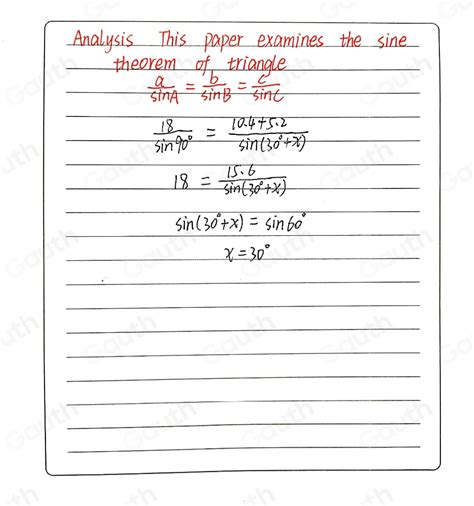 Analysis This paper examines the sine
theorem of triangle
a/sinA = b/sinB = c/sinC
18/sin90° = 10.4+5.2/sin(30°+x)
18 = 15.6/sin(30°+x)
sin(30°+x) = sin60°
x=30°
Gauth